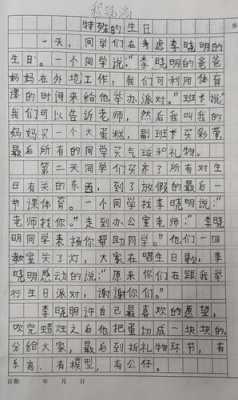 特殊的生日
一天，同学们在考虑李晓明的
生日。一个同学说："李晓明的爸爸
妈妈在外地工作，我们可利用体育
课的时间来给他举办派对。"班长说
我们可以告诉老师，然后我叫我的
妈妈买一个大蛋糕，副班长买彩带，
最后所有的同学买气球和礼物。
第二天同学们买来了所有对生
日有关的东西，到了放假的最后一
节课体育。一个同学找李晓明说："
老师找你。"走到办公室老师："李晓
明同学来
帮同学。"他们一回
教室关了灯，大家在唱生日歌，李
晓明感动的说："原来你们在跟我举
行生日派对，谢谢你们。"
李晓明许自己最喜欢的愿望，
吹完蜡烛之后他把蛋糕切成一块块的，
分给大家，最后到拆礼物环节，有
乐高，有模型，有公仔。
日期： 年 月 日